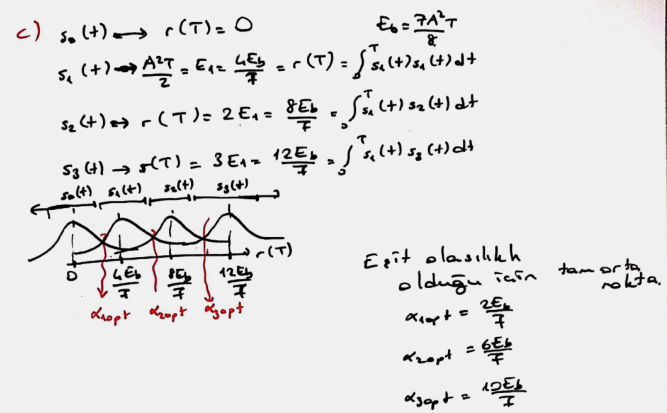 c) s₀(t) ⟷ r(T) = 0
E_b = 7A²T/8
s₁(t) → A²T/2 = E₁ = 4E_b/7 = r(T) = ∫₀ᵀ s₁(t) s₁(t) dt
s₂(t) ↔ r(T) = 2E₁ = 8E_b/7 = ∫₀ᵀ s₁(t) s₂(t) dt
s₃(t) → r(T) = 3E₁ = 12E_b/7 = ∫₀ᵀ s₁(t) s₃(t) dt
s₀(t) s₁(t) s₂(t) s₃(t)
r(T)
0 4E_b/7 8E_b/7 12E_b/7
α₁opt α₂opt α₃opt
Eşit olasılıklı
olduğu için tam orta
nokta.
α₁opt = 2E_b/7
α₂opt = 6E_b/7
α₃opt = 10E_b/7